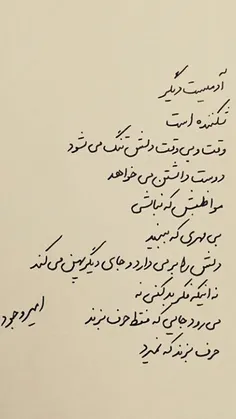 آدمیست دیگر
شکننده است
وقت و بی وقت دلش تنگ می شود
دوست داشتن می خواهد
مواظبش که نباشی
بی مهری که ببیند
دلش را بر می دارد و جای دیگر پهن می کند
نه اینکه فکر بد بکنی نه
می رود جایی که فقط حرف بزند
حرف بزند که نمیرد
امیر وجود